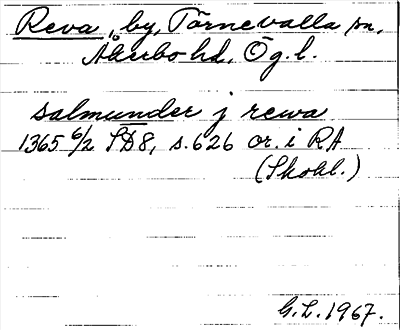 Reva, by, Törnevalla sn,
Åkerbo hd, Ög. l.
salmunder j rewa
1365 6/2 SD8, s. 626 or. i RA
(Skokl.)
G.L. 1967.